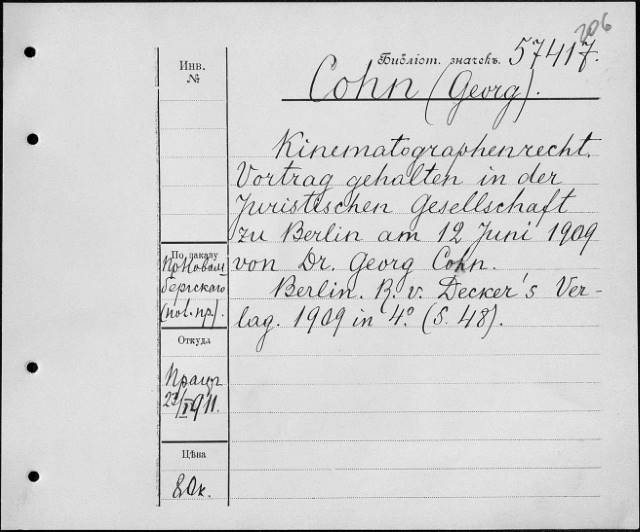 206
Инв.
№
Библіот. значекъ. 57417.
Cohn (Georg).
Kinematographenrecht.
Vortrag gehalten in der
Juristischen Gesellschaft
zu Berlin am 12 Juni 1909
von Dr. Georg Cohn.
Berlin. R. v. Decker's Ver-
lag. 1909 in 4º (S. 48).
По заказу
бергскаго
Откуда
1911.
Цѣна
80 к.